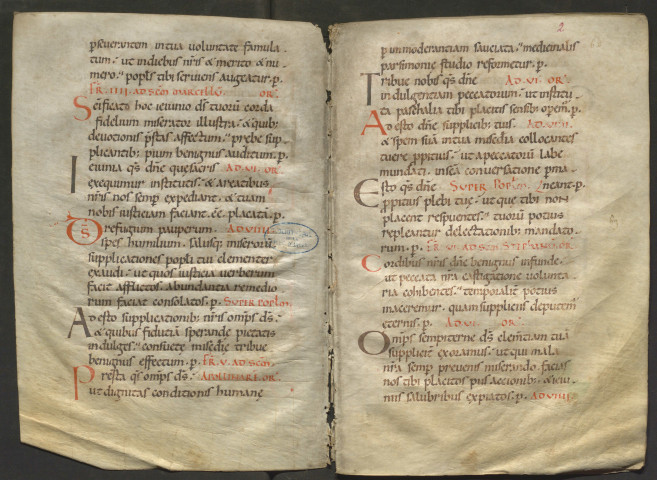 pseverantem in tua voluntate famula-
tum. ut in diebus nr̃is & merito & nu-
mero. popls tibi serviens augeatur. p.
FR̃ IIII AD SCM̃ MARCELLŨ. OR̃.
Sc̃ificato hoc ieiunio ds̃ tuorũ corda
fidelium miserator illustra. & quib;
devotionis p̃stas affectum. prebe sup-
plicantib; pium benignus auditum. p.
Ieiunia qs̃ dñe que sacris AD VI. OR̃
exequimur institutis. & a reatibus
nr̃is nos semp expediant. & tuam
nobis iusticiam faciant. ẽẽ placatã. p.
Ds̃ refugium pauperum. AD VIIII
spes humilium. salusq; miserorũ.
supplicationes popli tui clementer
exaudi. ut quos iusticia verberum
facit afflictos. abundantia remedio
rum faciat consolatos. p. SUPER POPLM̃
Adesto supplicationib; nr̃is omps̃ ds̃.
& quibus fiduciã sperande pietatis
indulges. consuete misc̃die tribue
benignus effectum. p. FR̃. V. AD SCM̃
Presta qs̃ omps̃ ds̃. APOLLINARE. OR̃.
ut dignitas conditionis humanę
2
p inmoderantiam sauciata. medicinalis
parsimonie studio reformetur. p.
Tribue nobis qs̃ dñe AD. VI. OR̃.
indulgentiam peccatorum. ut institu
ta paschalia tibi placitis sensib; opem̃. p.
Adesto dñe supplicib; tuis. AD. VIIII
& spem suã in tua misc̃dia collocantes
tuere ppicius. ut a peccatorũ labe
mundati. in sc̃a conversatione pma-
Esto qs̃ dñe SUPER POPLM̃. neant. p.
ppicius plebi tuę. ut que tibi non
placent respuentes. tuorũ potius
repleantur delectationib; mandato-
rum. p. FR̃. VI. AD SCM̃ STEPHANŨ. OR̃
Cordibus nr̃is dñe benignus infunde.
ut peccata nr̃a castigatione volunta-
ria cohibentes. temporalit̃ potius
maceremur. quam suppliciis deputem̃
eternis. p. AD. VI. OR̃.
Omps̃ sempiterne ds̃ clementiam tuã
supplicit̃ exoramus. ut qui mala
nr̃a semp prevenis miserando. facias
nos tibi placitos piis accionib; & ieiu-
niis salubribus expiatos. p. AD. VIIII.